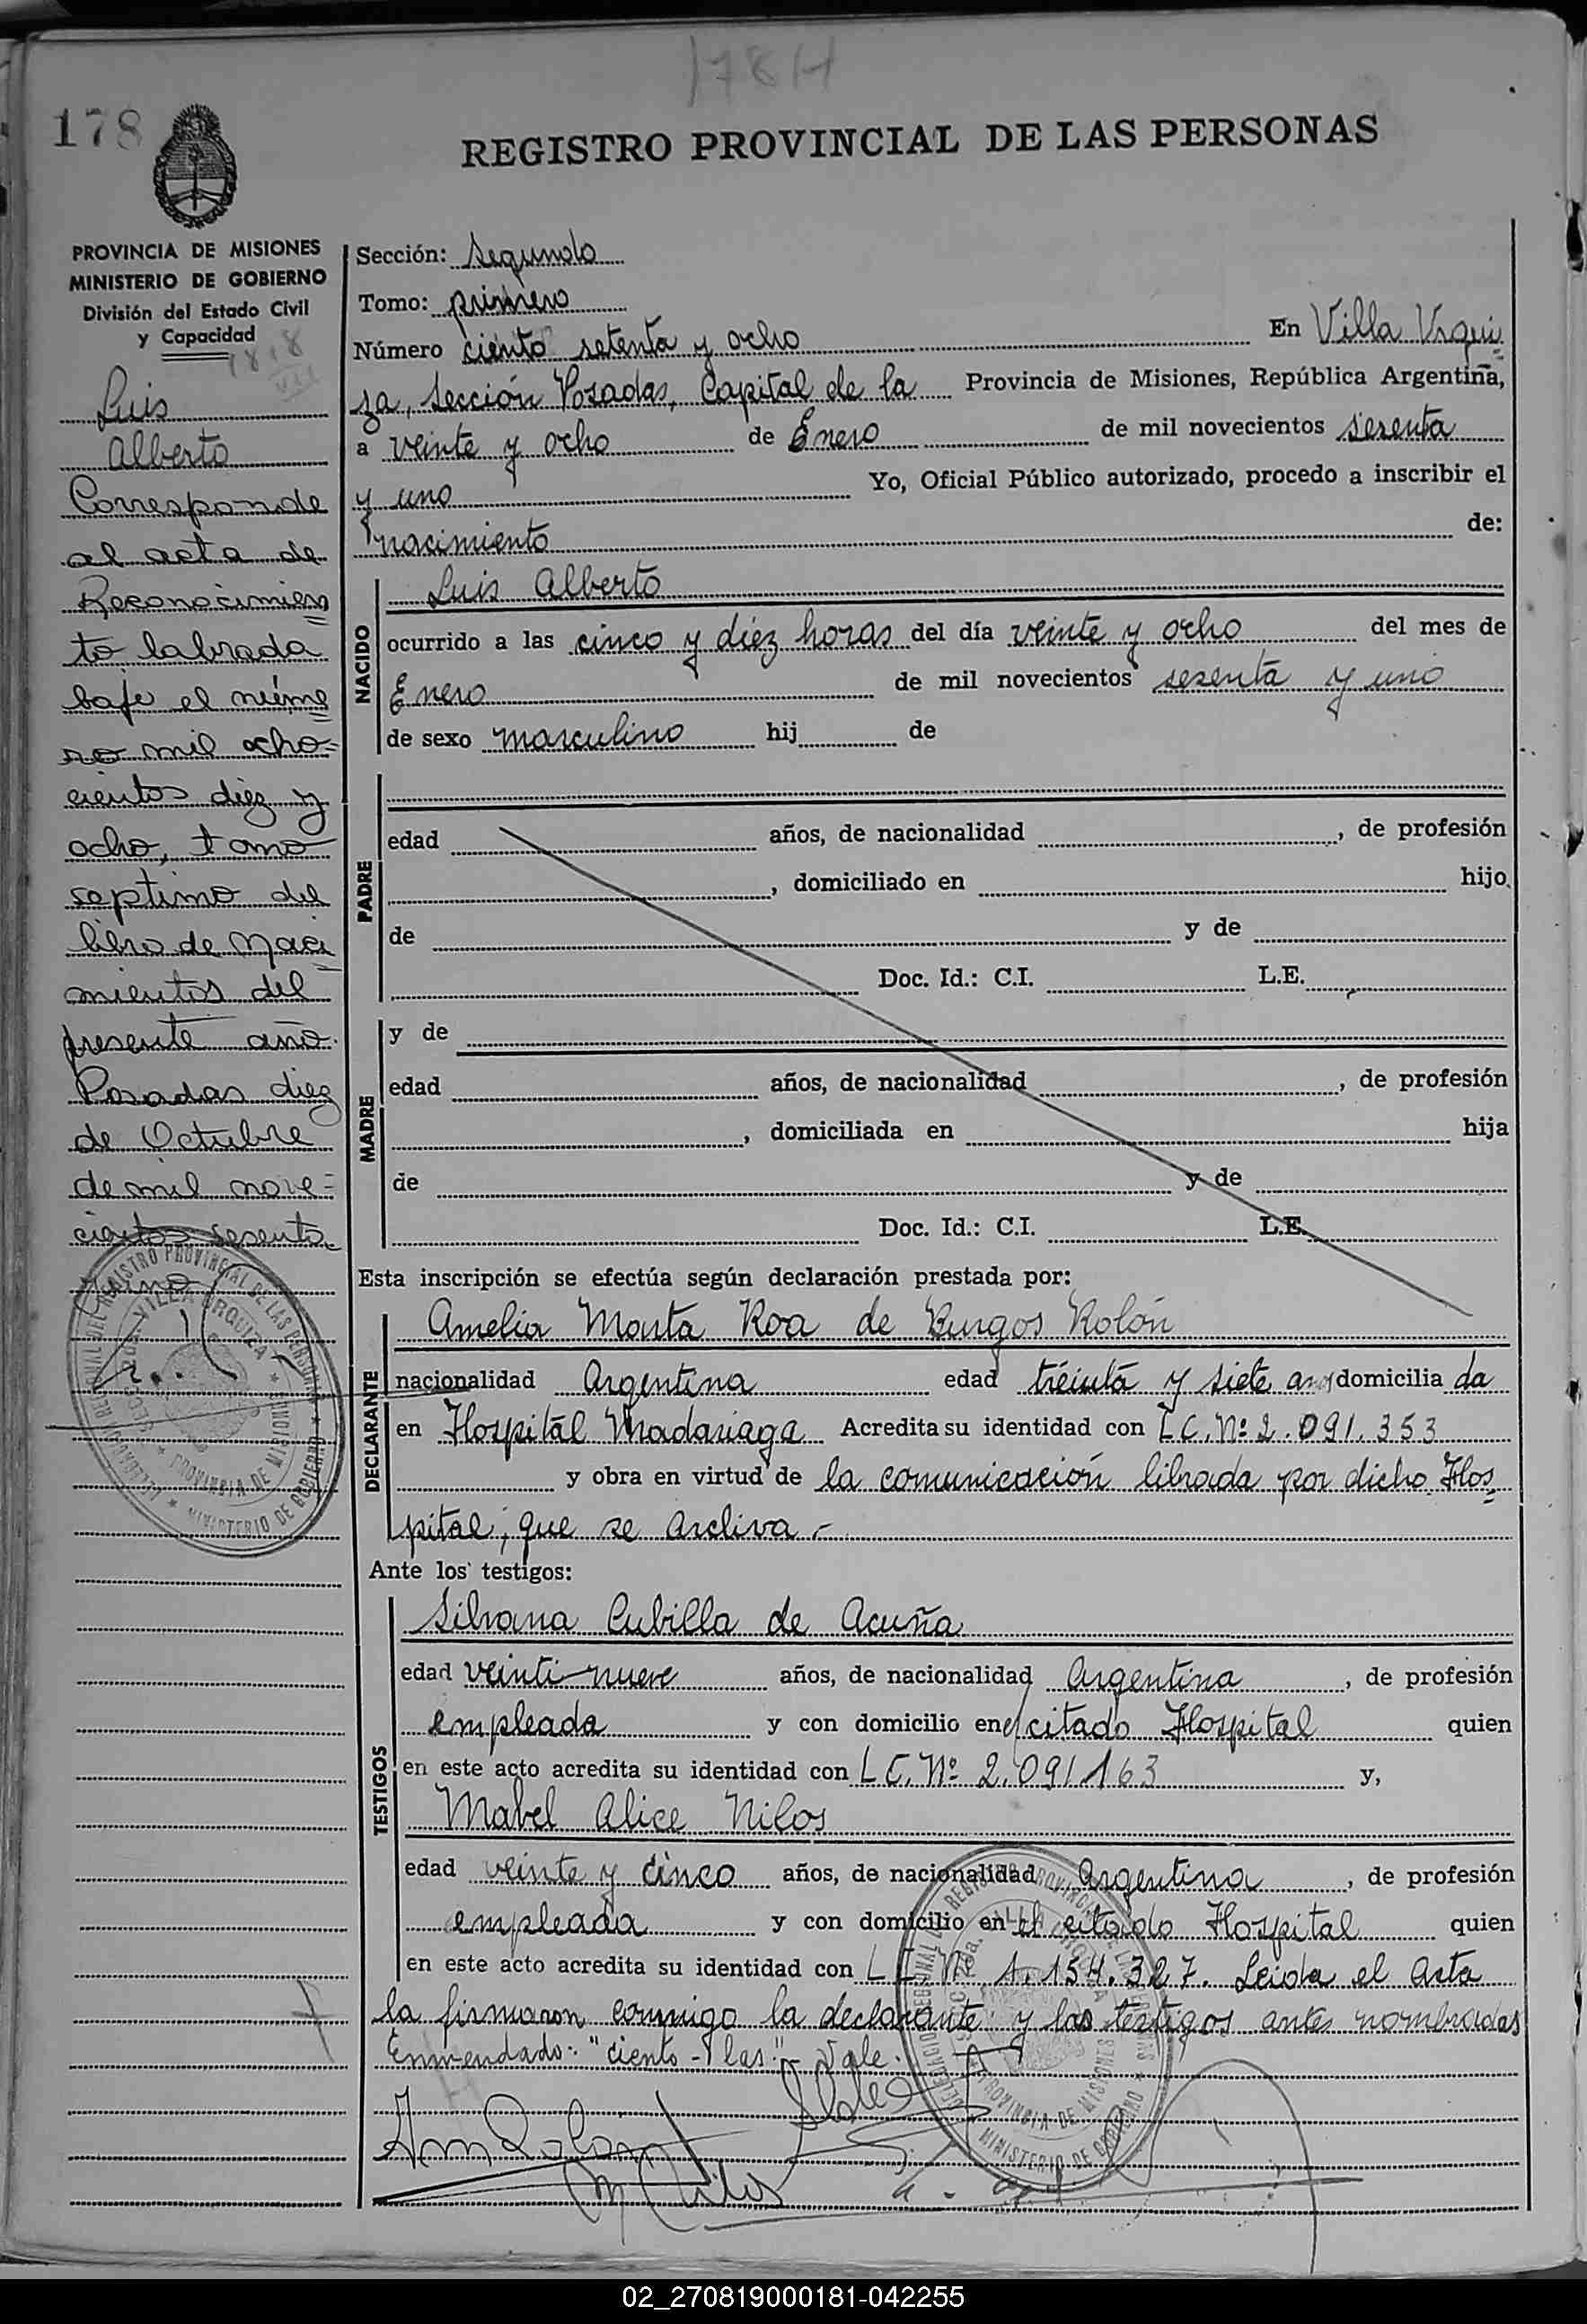 178H
178
REGISTRO PROVINCIAL DE LAS PERSONAS
PROVINCIA DE MISIONES
MINISTERIO DE GOBIERNO
División del Estado Civil
y Capacidad
1818
VII
Luis
Alberto
Corresponde
al acta de
Reconocimien
to labrada
bajo el núme
ro mil ocho=
cientos diez y
ocho, tomo
septimo del
libro de Naci
mientos del
presente año.
Posadas diez
de Octubre
de mil nove=
cientos sesenta
y uno
Sección: Segunda
Tomo: primero
Número ciento setenta y ocho En Villa Urqui
za, Sección Posadas, Capital de la Provincia de Misiones, República Argentina,
a veinte y ocho de Enero de mil novecientos sesenta
y uno Yo, Oficial Público autorizado, procedo a inscribir el
nacimiento de:
NACIDO
Luis Alberto
ocurrido a las cinco y diez horas del día veinte y ocho del mes de
Enero de mil novecientos sesenta y uno
de sexo masculino hij de
PADRE
edad años, de nacionalidad , de profesión
, domiciliado en hijo
de y de
Doc. Id.: C.I. L.E.
MADRE
y de
edad años, de nacionalidad , de profesión
, domiciliada en hija
de y de
Doc. Id.: C.I. L.E.
Esta inscripción se efectúa según declaración prestada por:
DECLARANTE
Amelia Roa de Burgos Rolón
nacionalidad Argentina edad treinta y siete años domicilia da
en Hospital Madariaga Acredita su identidad con L.C. Nº 2.091.353
y obra en virtud de la comunicación librada por dicho Hos
pital, que se archiva.-
Ante los testigos:
TESTIGOS
Silvana Cubilla de Acuña
edad veinti nueve años, de nacionalidad Argentina, de profesión
empleada y con domicilio en el citado Hospital quien
en este acto acredita su identidad con L.C. Nº 2.091.163 y,
Mabel Alice Nilos
edad veinte y cinco años, de nacionalidad Argentina, de profesión
empleada y con domicilio en el citado Hospital quien
en este acto acredita su identidad con Nº 1.154.327. Leida el Acta
la firmaron conmigo la declarante y las testigos antes nombradas
Enmendado: "ciento - las" - Vale.
02_270819000181-042255